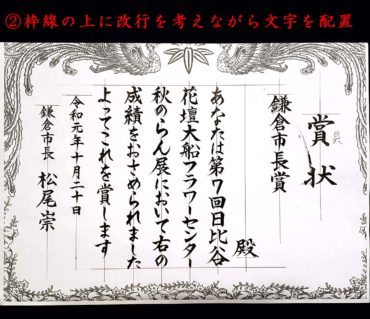 ②枠線の上に改行を考えながら文字を配置
賞状
鎌倉市長賞
殿
あなたは第7回日比谷
花壇大船フラワーセンター
秋のらん展において右の
成績をおさめられました
よってこれを賞します
令和元年十月二十日
鎌倉市長 松尾崇